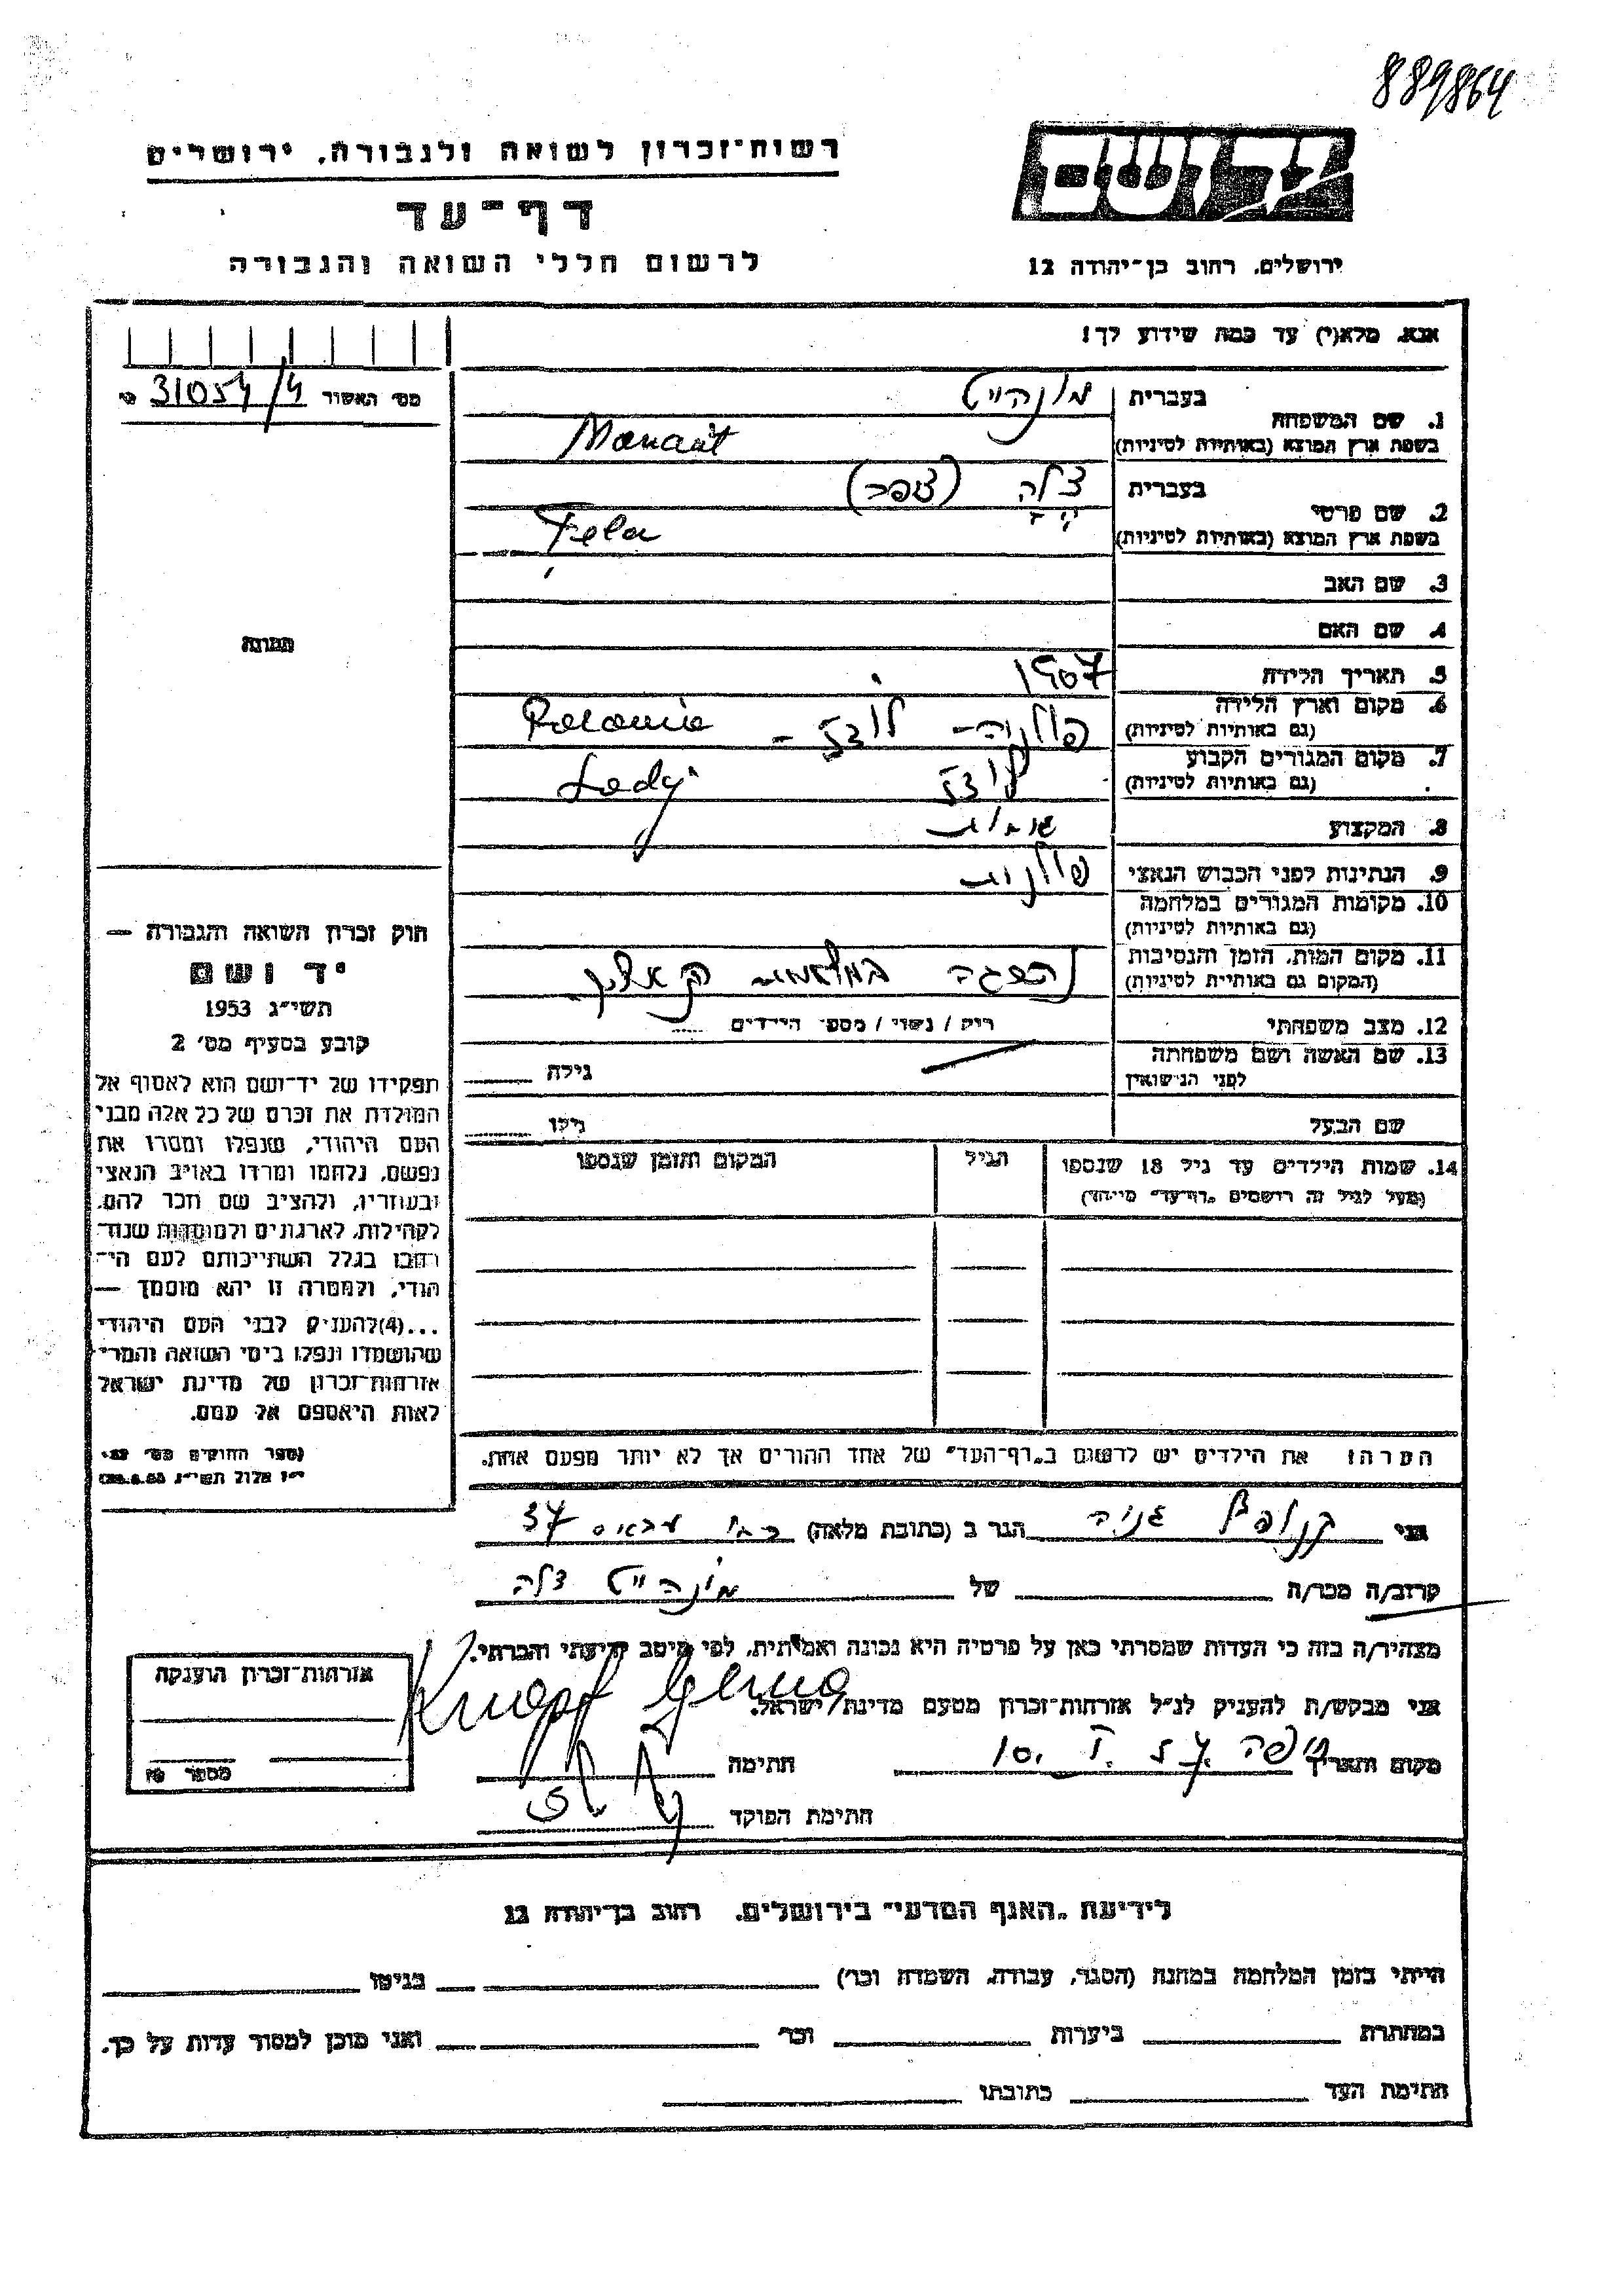 889864
רשות-זכרון לשואה ולגבורה, ירושלים
דף-עד
לרשום חללי השואה והגבורה
יד ושם
ירושלים, רחוב בן-יהודה 12
אנא, מלא(י) עד כמה שידוע לך!
מס׳ האשור 31054/4
1. שם המשפחה
בעברית
בשפת ארץ המוצא (באותיות לטיניות)
2. שם פרטי
בעברית צלה
בשפת ארץ המוצא (באותיות לטיניות) Fela
3. שם האב
4. שם האם
5. תאריך הלידה 1907
6. מקום וארץ הלידה
(גם באותיות לטיניות)
7. מקום המגורים הקבוע
(גם באותיות לטיניות)
8. המקצוע
9. הנתינות לפני הכבוש הנאצי פולנית
10. מקומות המגורים במלחמה
(גם באותיות לטיניות)
11. מקום המות, הזמן והנסיבות
(המקום גם באותיות לטיניות)
12. מצב משפחתי רוק / נשוי / מספר הילדים
13. שם האשה ושם משפחתה
לפני הנישואין
גילה
שם הבעל
גילו
14. שמות הילדים עד גיל 18 שנספו
(מעל לגיל זה רושמים "דף-עד" מיוחד)
הגיל
המקום והזמן שנספו
תמונה
חוק זכרון השואה והגבורה —
יד ושם
תשי״ג 1953
קובע בסעיף מס׳ 2
תפקידו של יד-ושם הוא לאסוף אל
המולדת את זכרם של כל אלה מבני
העם היהודי, שנפלו ומסרו את
נפשם, נלחמו ומרדו באויב הנאצי
ובעוזריו, ולהציב שם וזכר להם,
לקהילות, לארגונים ולמוסדות שנח-
רבו בגלל השתייכותם לעם הי-
הודי, ולמטרה זו יהא מוסמך —
...(4) להעניק לבני העם היהודי
שהושמדו ונפלו בימי השואה והמרי
אזרחות-זכרון של מדינת ישראל
לאות היאספם אל עמם.
הערה: את הילדים יש לרשום ב"דף-העד" של אחד ההורים אך לא יותר מפעם אחת.
אני גניה הגר ב (כתובת מלאה) 37
קרוב/ה מכר/ה של צלה
מצהיר/ה בזה כי העדות שמסרתי כאן על פרטיה היא נכונה ואמיתית, לפי מיטב ידיעתי והכרתי.
אני מבקש/ת להעניק לנ״ל אזרחות-זכרון מטעם מדינת ישראל.
מקום ותאריך חיפה
חתימה Knopf
חתימת הפוקד
אזרחות-זכרון הוענקה
מספר
לידיעת "האגף המדעי" בירושלים, רחוב בן-יהודה 12
הייתי בזמן המלחמה במחנה (הסגר, עבודה, השמדה וכו׳) בגיטו
במחתרת ביערות וכו׳ ואני מוכן למסור עדות על כך.
חתימת העד כתובתו